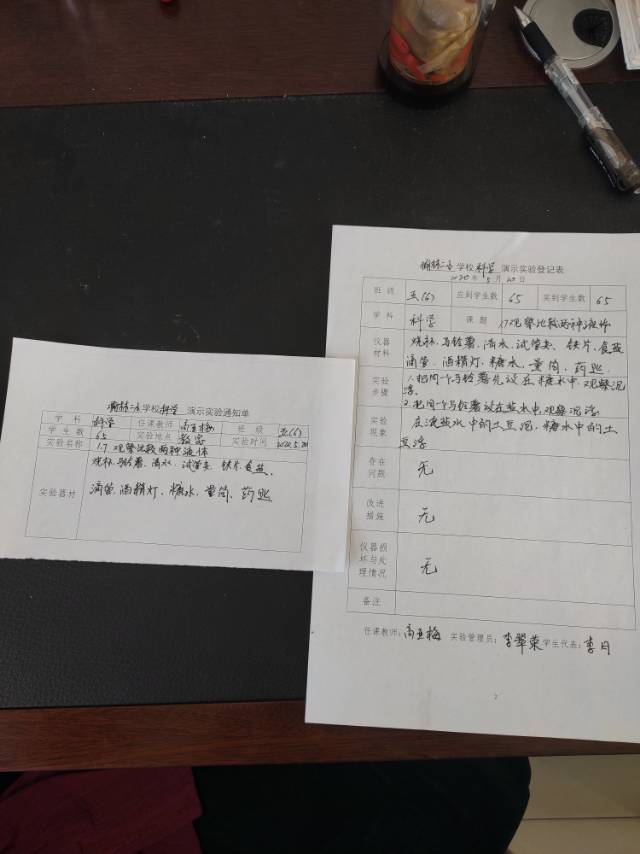 学校科学 演示实验通知单
学科 科学 任课教师 高玉梅 班级 五(6)
学生数 65 实验地点 教室 实验时间
实验名称 1.7 观察比较两种液体
实验器材 烧杯、马铃薯、清水、试管夹、铁片、食盐、
滴管、酒精灯、糖水、量筒、药匙
学校科学 演示实验登记表
2020年5月20日
班级 五(6) 应到学生数 65 实到学生数 65
学科 科学 课题 1.7观察比较两种液体
仪器材料 烧杯、马铃薯、清水、试管夹、铁片、食盐
滴管、酒精灯、糖水、量筒、药匙
实验步骤 1.把同一个马铃薯先放在糖水中,观察沉浮。
2.把同一个马铃薯放在盐水中,观察沉浮
实验现象 在浓盐水中的土豆沉、糖水中的土豆浮
存在问题 无
改进措施 无
仪器损坏与处理情况 无
备注
任课教师:高玉梅 实验管理员:李翠荣 学生代表:李月
2